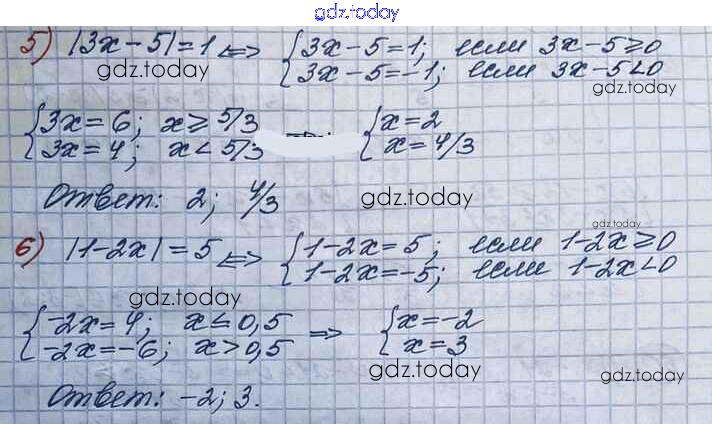 gdz.today
5) |3x-5|=1 <=> { 3x-5=1; если 3x-5≥0
3x-5=-1; если 3x-5<0
gdz.today
gdz.today
{ 3x=6; x≥5/3 { x=2
3x=4; x<5/3 x=4/3
Ответ: 2; 4/3
gdz.today
gdz.today
6) |1-2x|=5 <=> { 1-2x=5; если 1-2x≥0
1-2x=-5; если 1-2x<0
gdz.today
{ -2x=4; x≤0,5 => { x=-2
-2x=-6; x>0,5 x=3
gdz.today
gdz.today
Ответ: -2; 3.